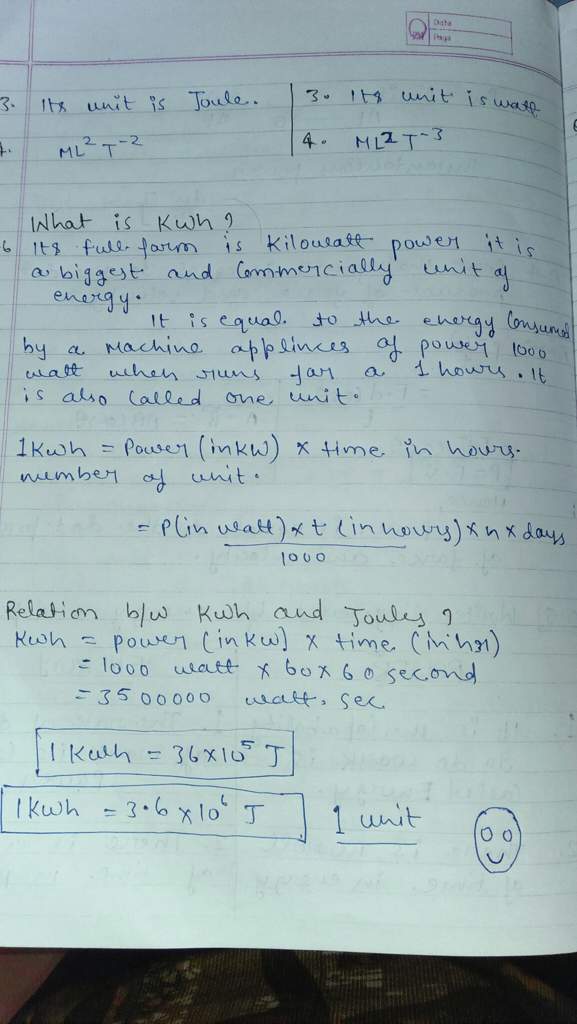 Date
Page
3. Its unit is Joule. 3. Its unit is watt
ML² T⁻² 4. ML² T⁻³
What is Kwh ?
Its full farm is Kilowatt power it is
a biggest and Commercially unit of
energy.
It is equal to the energy Consumed
by a Machine applinces of power 1000
watt when runs far a 1 hours. It
is also called one unit.
1 Kwh = Power (in kw) × time in hours.
number of unit.
= P(in watt) × t (in hours) × n × days
1000
Relation b/w Kwh and Joules ?
Kwh = power (in kw] × time (in hr)
= 1000 watt × 60 × 60 second
= 3500000 watt. sec
1 Kwh = 36×10⁵ J
1 Kwh = 3.6 × 10⁶ J 1 unit